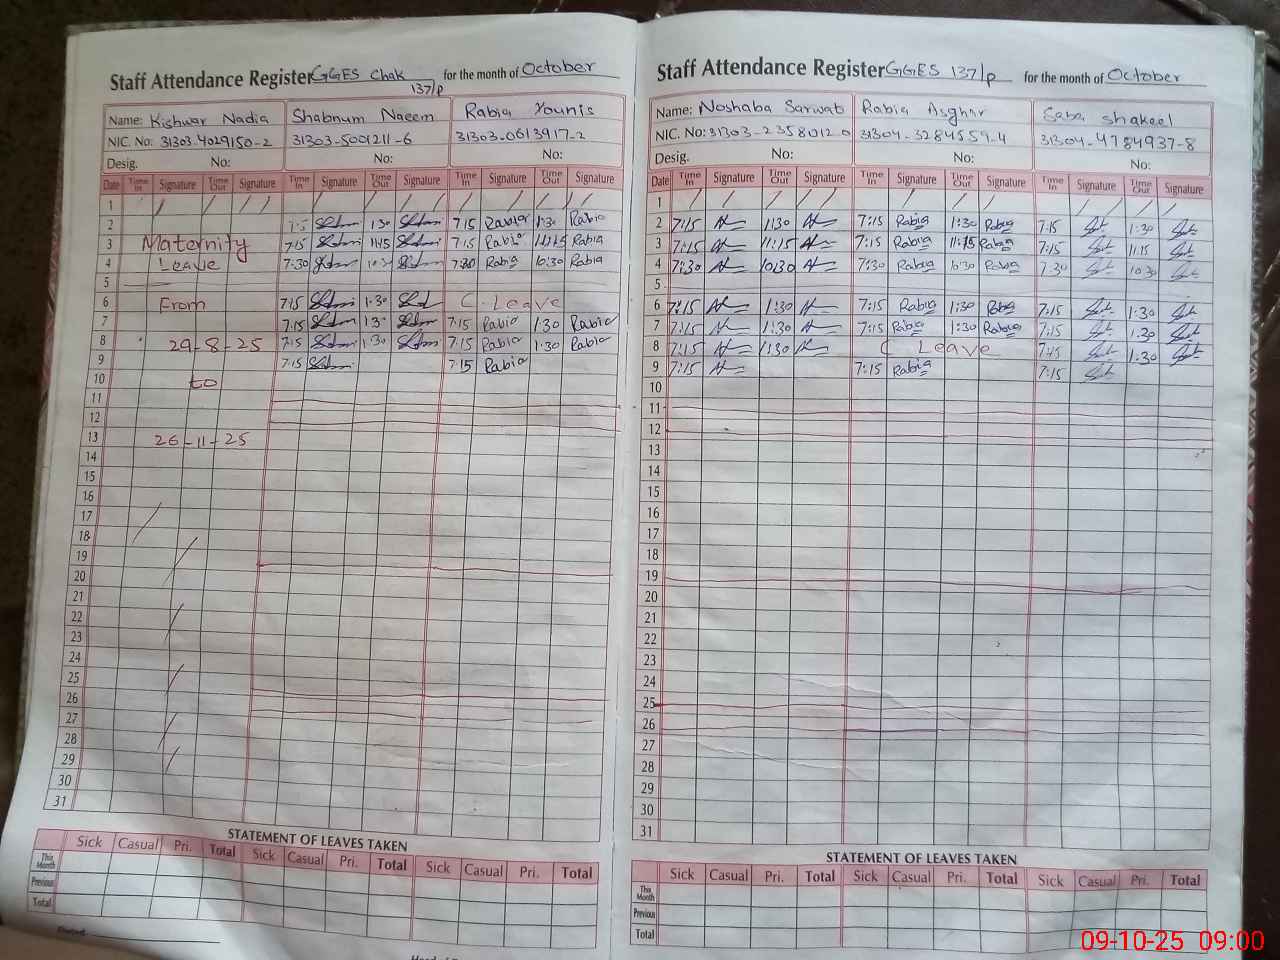 Staff Attendance Register GGES Chak 137/p for the month of October
Name: Kishwar Nadia Shabnum Naeem Rabia Younis
NIC. No: 31303-4029150-2 31303-5001211-6 31303-0613917-2
Desig. No: No: No:
Date Time In Signature Time Out Signature Time In Signature Time Out Signature Time In Signature Time Out Signature
1
2 7:15 1:30 7:15 Rabia 1:30 Rabia
3 Maternity 7:15 11:45 7:15 Rabia 11:15 Rabia
4 Leave 7:30 10:3 7:30 Rabia 10:30 Rabia
5
6 From 7:15 1:30 C. Leave
7 7:15 1:3 7:15 Rabia 1:30 Rabia
8 29-8-25 7:15 1:30 7:15 Rabia 1:30 Rabia
9 7:15 7:15 Rabia
10 to
11
12
13 26-11-25
14
15
16
17
18
19
20
21
22
23
24
25
26
27
28
29
30
31
STATEMENT OF LEAVES TAKEN
Sick Casual Pri. Total Sick Casual Pri. Total Sick Casual Pri. Total
This Month
Previous
Total
Staff Attendance Register GGES 137/p for the month of October
Name: Noshaba Sarwat Rabia Asghar Saba shakeel
NIC. No: 31303-2358012-0 31304-3284559-4 31304-4784937-8
Desig. No: No: No:
Date Time In Signature Time Out Signature Time In Signature Time Out Signature Time In Signature Time Out Signature
1
2 7:15 1:30 7:15 Rabia 1:30 Rabia 7:15 1:30
3 7:15 11:15 7:15 Rabia 11:15 Rabia 7:15 11:15
4 7:30 10:30 7:30 Rabia 10:30 Rabia 7:30 10:30
5
6 7:15 1:30 7:15 Rabia 1:30 Rabia 7:15 1:30
7 7:15 1:30 7:15 Rabia 1:30 Rabia 7:15 1:30
8 7:15 1:30 C Leave 7:15 1:30
9 7:15 7:15 Rabia 7:15
10
11
12
13
14
15
16
17
18
19
20
21
22
23
24
25
26
27
28
29
30
31
STATEMENT OF LEAVES TAKEN
Sick Casual Pri. Total Sick Casual Pri. Total Sick Casual Pri. Total
This Month
Previous
Total
09-10-25 09:00